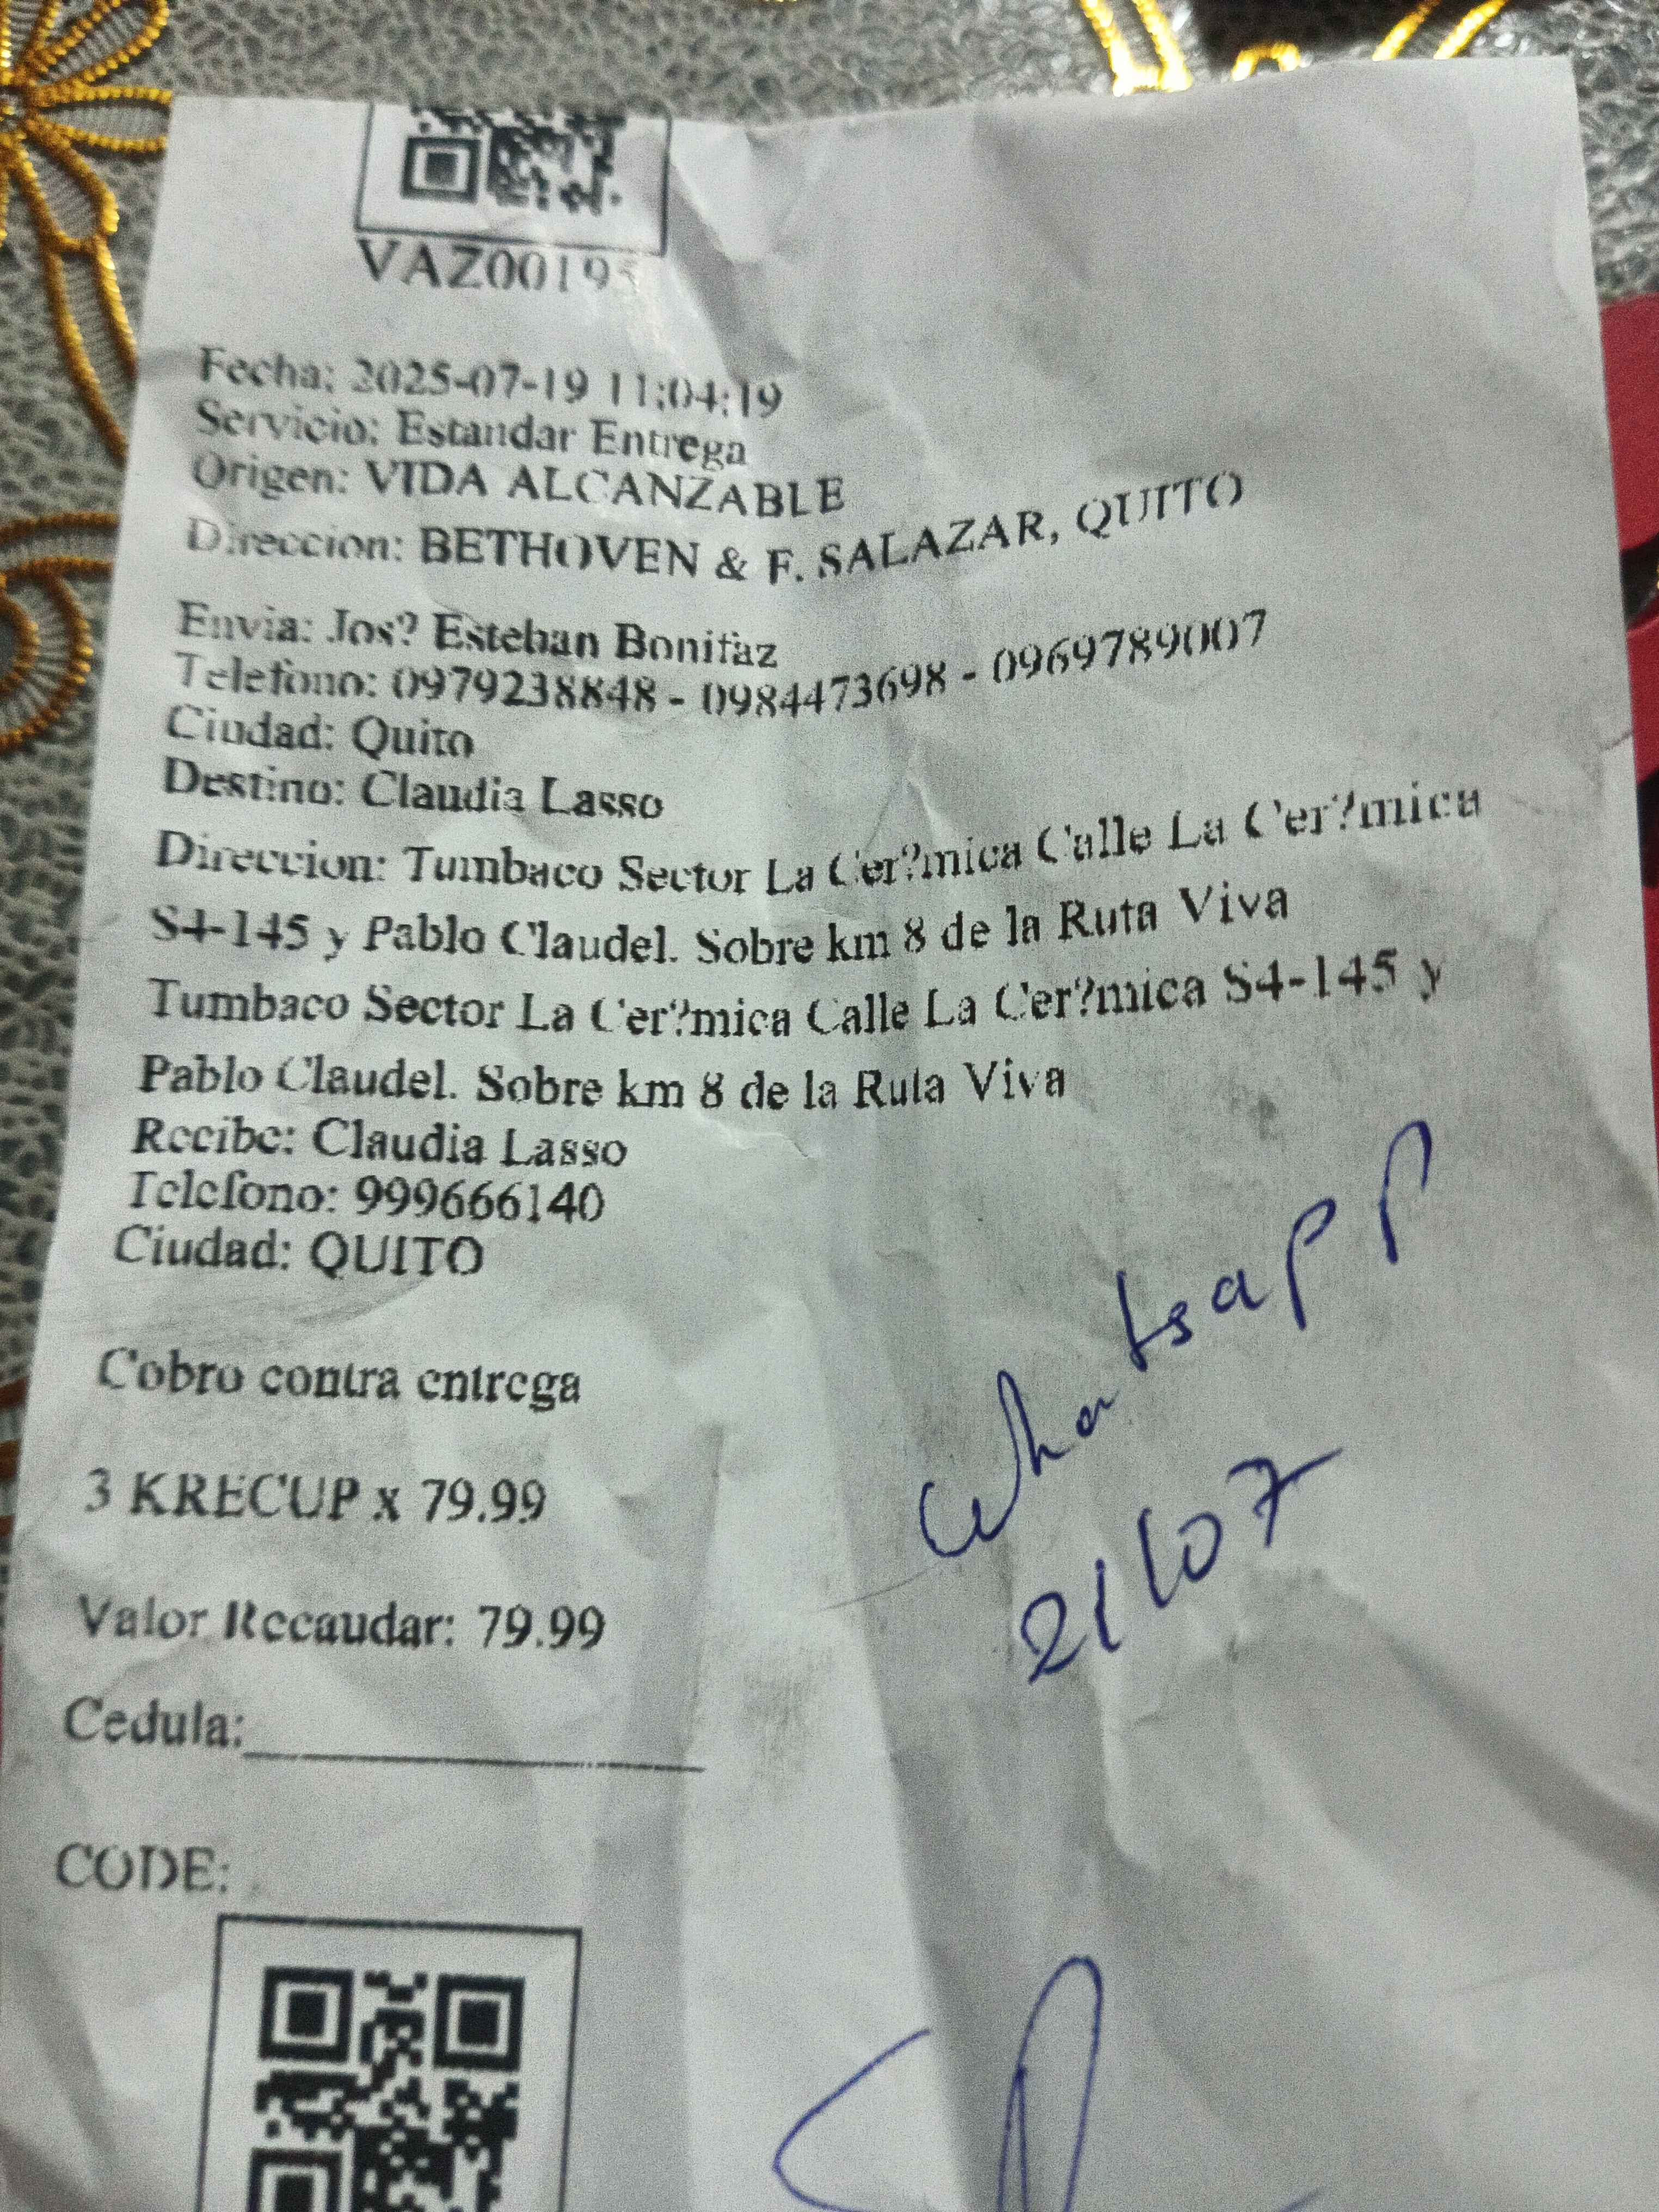 VAZ00195
Fecha: 2025-07-19 11:04:19
Servicio: Estandar Entrega
Origen: VIDA ALCANZABLE
Direccion: BETHOVEN & F. SALAZAR, QUITO
Envia: Jos? Esteban Bonifaz
Telefono: 0979238848 - 0984473698 - 0969789007
Ciudad: Quito
Destino: Claudia Lasso
Direccion: Tumbaco Sector La Cer?mica Calle La Cer?mica
S4-145 y Pablo Claudel. Sobre km 8 de la Ruta Viva
Tumbaco Sector La Cer?mica Calle La Cer?mica S4-145 y
Pablo Claudel. Sobre km 8 de la Ruta Viva
Recibe: Claudia Lasso
Telefono: 999666140
Ciudad: QUITO
Cobro contra entrega
3 KRECUP x 79.99
Valor Recaudar: 79.99
Cedula:
CODE:
Whatsapp
21/07